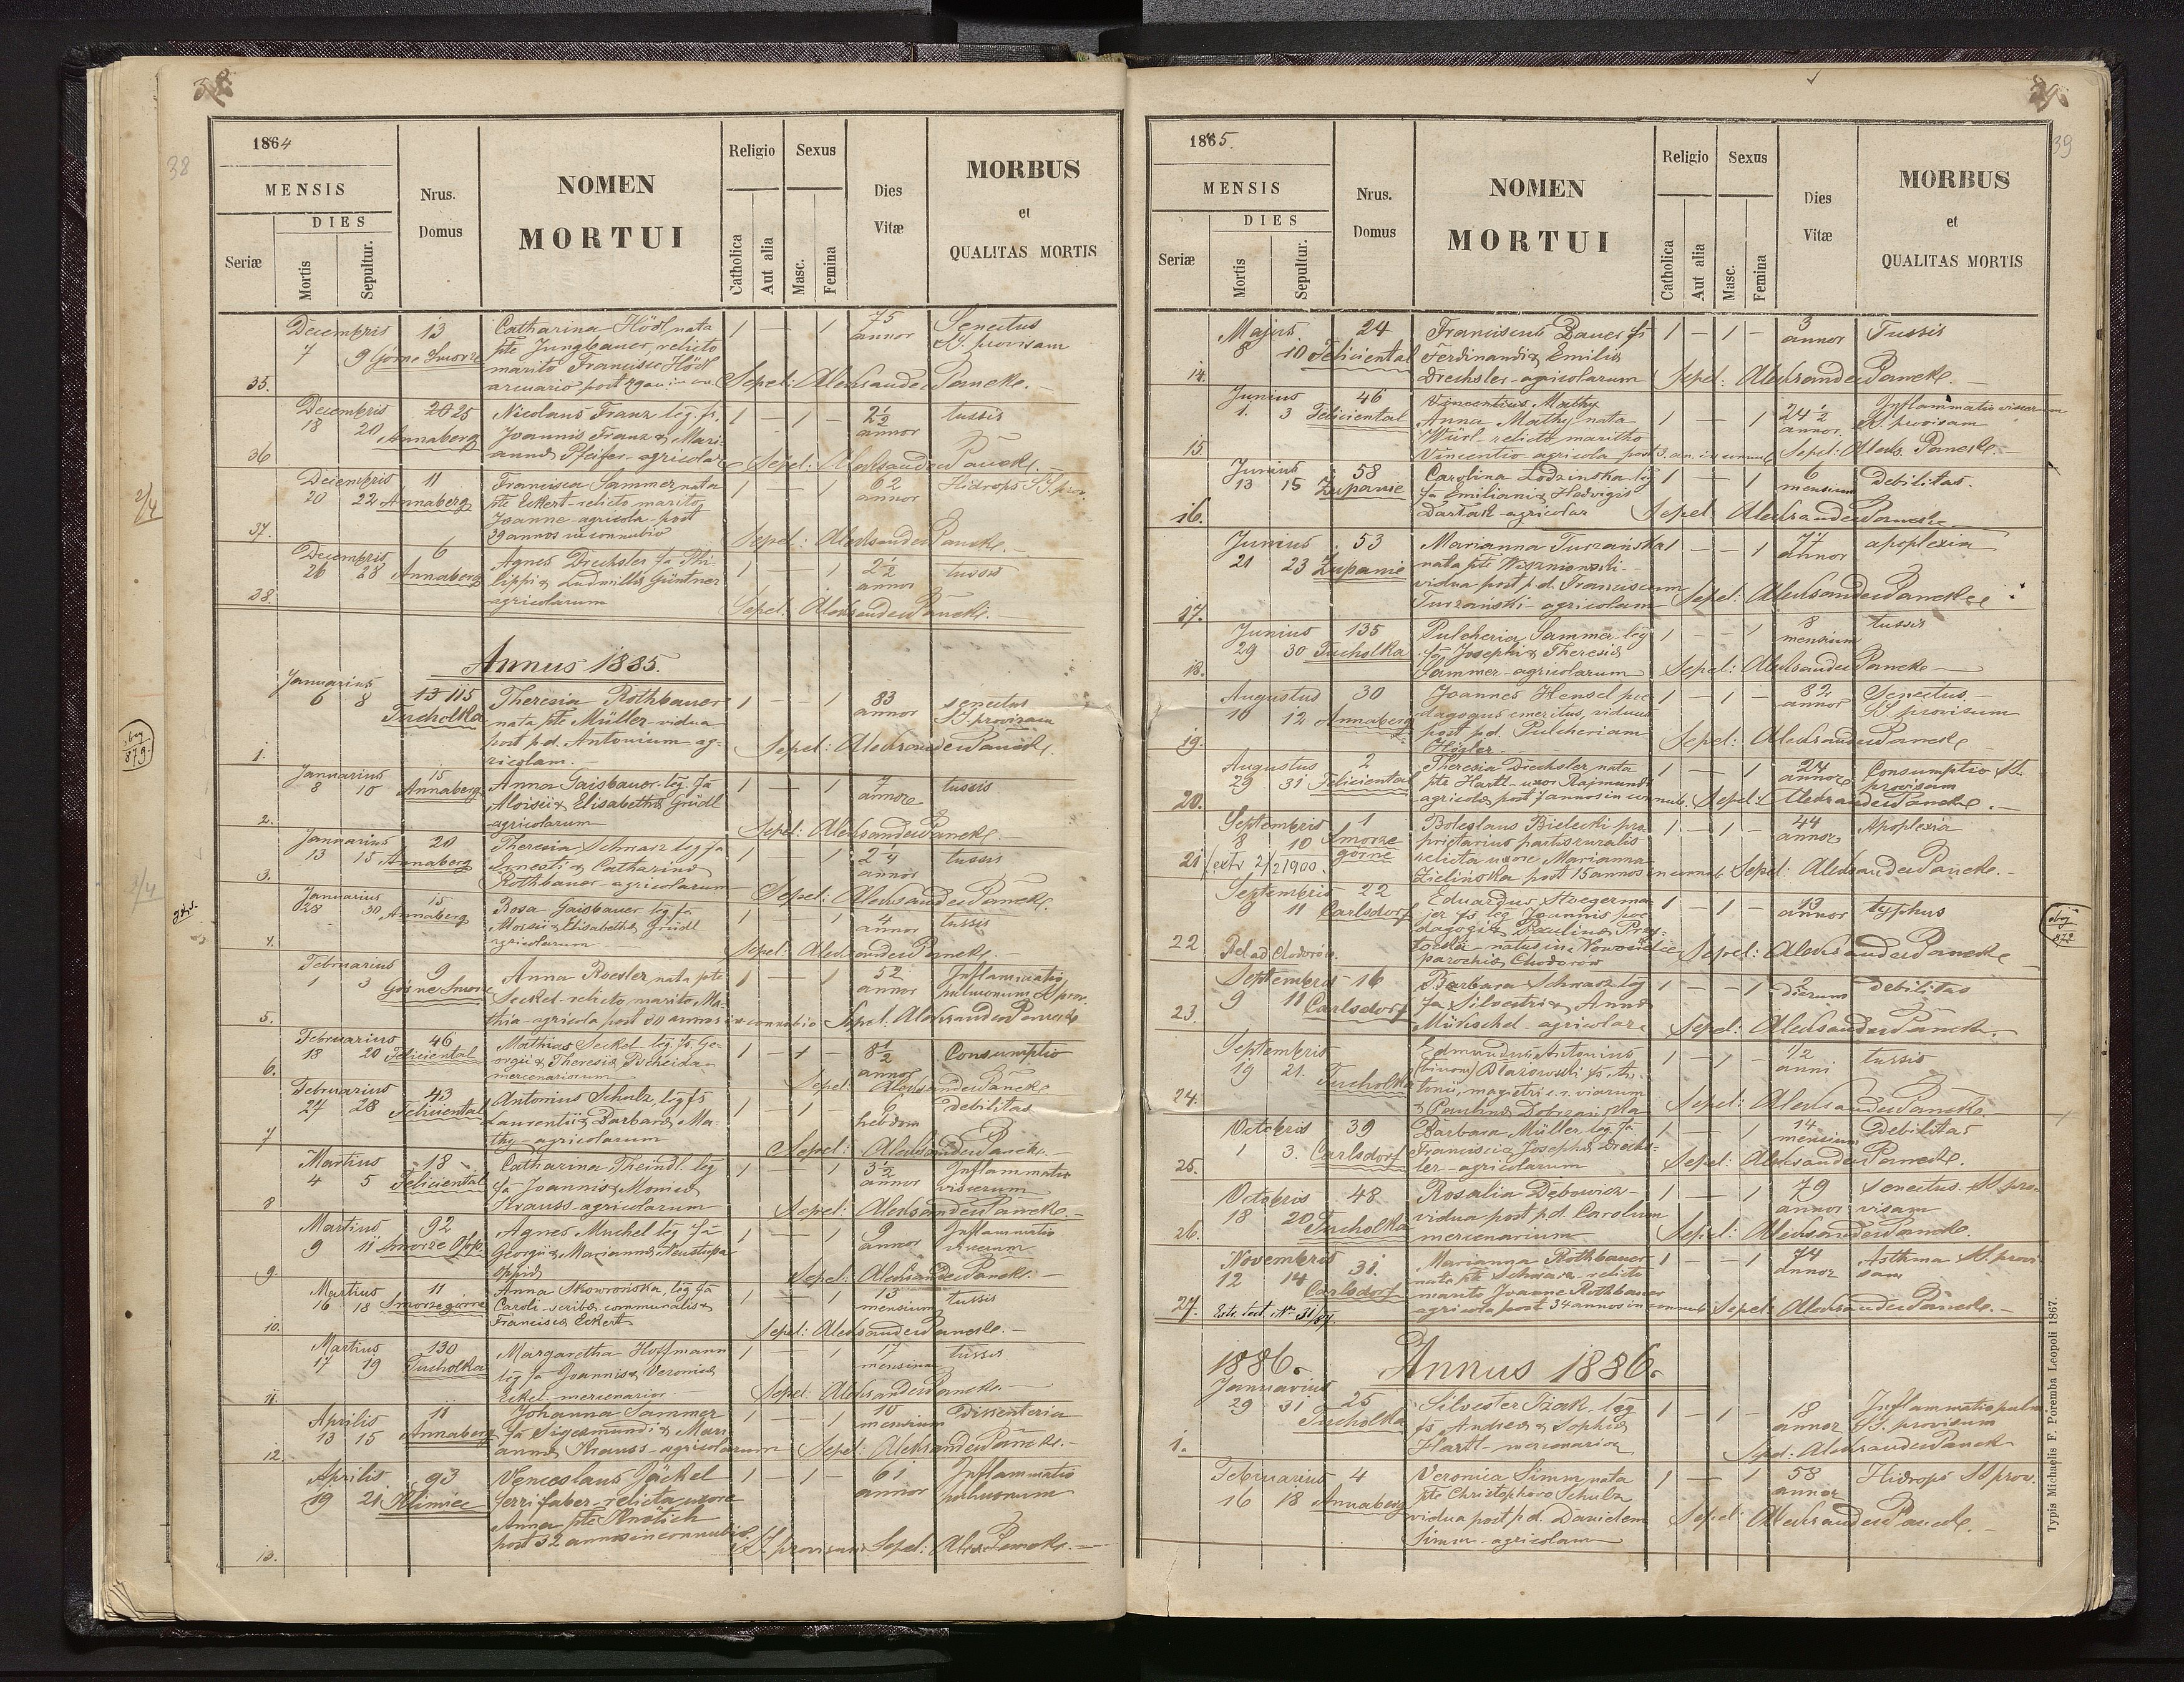 38
1864
MENSIS
DIES
Seriæ
Mortis
Sepultur.
Nrus. Domus
NOMEN MORTUI
Religio
Catholica
Aut alia
Sexus
Masc.
Femina
Dies Vitæ
MORBUS
et
QUALITAS MORTIS
Decembris 13 Catharina Hödl nata 1 — 1 75 Senectus
7 9 Górne Smorze pte Jungbauer, relicto annor SS. provisam
marito Francisco Hödl
35. Sepel: Aleksander Pancke.
Decembris 25 Nicolaus Franz leg. fs. 1 — 1 — 2½ tussis
18 20 Annaberg Joannis Franz & Mari- annor
36 annæ Pfeifer - agricolar Sepel: Aleksander Pancke.
Decembris 11 Francisca Sammer nata 1 — 1 62 Hidrops SS. prov.
20 22 Annaberg pte Eckert - relicto marito annor
Joanne - agricola - post
37. 39 annos in connubio Sepel: Aleksander Pancke.
Decembris 6 Agnes Drechsler fa Phi- 1 — 1 2½ tussis
26 28 Annaberg lippi & Ludmillæ Güntner annor
38. agricolarum Sepel: Aleksander Pancke.
Annus 1885.
Januarius 115 Theresia Rothbauer 1 — 1 83 senectus
6 8 Tucholka nata pte Müller - vidua annor SS. provisam
post p.d. Antonium ag-
1. ricolam. Sepel: Aleksander Pancke.
Januarius 15 Anna Gaisbauer leg. fa 1 — 1 7 tussis
8 10 Annaberg Aloisii & Elisabethæ Grüdl annor
2. agricolarum Sepel: Aleksander Pancke.
Januarius 20 Theresia Schwarz leg fa 1 1 2¼ tussis
13 15 Annaberg Ignatii & Catharinæ annor
3. Rothbauer agricolarum Sepel: Aleksander Pancke.
Januarius 15 Rosa Gaisbauer leg fa 1 — 1 4 tussis
28 30 Annaberg Aloisii & Elisabethæ Grüdl annor
4. agricolarum Sepel: Aleksander Pancke.
Februarius 9 Anna Roesler nata pte 1 — 1 52 Inflammatio
1 3 Górne Smorze Seckel - relicto marito Ma- annor pulmonum SS prov.
5. thia - agricola post 30 annos in connubio Sepel: Aleksander Pancke
Februarius 46 Mathias Seckel leg. fs. Ge- 1 — 1 — 8½ Consumptio
18 20 Feliciental orgii & Theresiæ annor
6. mercenariorum Sepel: Aleksander Pancke
Februarius 43 Antonius Schulz, leg fs 1 — 1 6 debilitas
27 28 Feliciental Laurentii & Barbaræ Ma- hebdom
7 thy - agricolarum Sepel: Aleksander Pancke.
Martius 18 Catharina Theindl. leg 1 — 1 3½ Inflammatio
4 5 Feliciental fa Joannis & Monicæ annor viscerum
8 Krauss - agricolarum Sepel: Aleksander Pancke.
Martius 92 Agnes Muchel leg fa 1 — 1 9 Inflammatio
9 11 Smorze Opp. Georgii & Mariannæ Neustupa annor viscerum
9. oppid Sepel: Aleksander Pancke.
Martius 11 Anna Skowrońska, leg fa 1 — 1 13 tussis
16 18 Smorze górne Caroli scribæ communalis & mensium
10. Franciscæ Eckert Sepel: Aleksander Pancke.
Martius 130 Margaretha Hoffmann 1 — 1 17 tussis
17 19 Tucholka leg fa Joannis & Veronicæ mensium
11. Eckel - mercenarior Sepel: Aleksander Pancke.
Aprilis 11 Johanna Sammer 1 — 1 10 Dissenteria
13 15 Annaberg fa Sigesmundi & Mari- mensium
12. annæ Krauss - agricolarum Sepel: Aleksander Pancke.
Aprilis 93 Venceslaus Jäckel 1 — 1 — 61 Inflammatio
19 21 Klimiec ferrifaber, relicta uxore annor pulmonum
Anna pte Knötich
13. post 32 annos in connubio. SS. provisum Sepel: Alex Pancke.
39
1885.
MENSIS
DIES
Seriæ
Mortis
Sepultur.
Nrus. Domus
NOMEN MORTUI
Religio
Catholica
Aut alia
Sexus
Masc.
Femina
Dies Vitæ
MORBUS
et
QUALITAS MORTIS
Majus 24 Franciscus Bauer fs 1 — 1 — 3 Tussis
8 10 Feliciental Ferdinandi & Emiliæ annor
14. Drechsler - agricolarum Sepel: Aleksander Pancke.
Junius 46 Vincentius Mathy Inflammatio viscerum
1. 3 Feliciental Anna Mathy nata 1 — 1 24½ SS. provisam
Würl - relicto maritho annor.
15. Vincentio agricola post 3 an. in connub Sepel: Aleks. Pancke.
Junius 58 Carolina Lodzinska leg 1 — 1 6 debilitas.
13 15 Żupanie fa Emiliani & Hedvigis mensium
16. Bartak - agricolar Sepel Aleksander Pancke
Junius 53 Marianna Turzańska 1 — 1 77 apoplexia
21 23 Żupanie nata pte Wiszniowski - annor
vidua post p.d. Franciscum
17. Turzański - agricolam Sepel: Aleksander Pancke
Junius 135 Pulcheria Sammer leg 1 — 1 8 tussis
29 30 Tucholka fa Josephi & Theresiæ mensium
18. Sammer - agricolarum Sepel: Aleksander Pancke
Augustus 30 Joannes Hensel pæ- 1 — 1 — 82 Senectus
10 12 Annaberg dagogus emeritus, viduus annor SS. provisum
post p.d. Pulcheriam
19. Higler Sepel: Aleksander Pancke
Augustus 2 Theresia Drechsler nata 1 — 1 27 Consumptio SS.
29 31 Feliciental pte Hartl - uxor Rajmundi annor provisam
20. agricolæ post 7 annos in connub. Sepel: Aleksander Pancke.
Septembris 1 Boleslaus Bielecki pro- 1 — 1 — 44 Apoplexia
8 10 Smorze górne prietarius partis ruralis annor
relicta uxore Marianna
21 (extr 2/2 1900. Zielińska post 15 annos in connub Sepel: Aleksander Pancke.
Septembris 22 Eduardus Stoegerma- 1 — 1 — 13 typhus
9 11 Carlsdorf jer fs leg Joannis pæ- annor
dagogi & Paulinæ Przy-
22 Rel ad Chodorów. tocka - natus in Nowosielce Sepel: Aleksander Pancke
parochiæ Chodorów
Septembris 16 Barbara Schwarz leg 1 — 1 2 debilitas
9 11 Carlsdorf fa Silvestri & Annæ dierum
23. Mütschel - agricolar Sepel: Aleksander Pancke.
Septembris Edmundus Antonius 1 — 1 ½ tussis
19 21. Tucholka (binom) Błażowski fs An- anni
tonii, magistri c.r. viarum
24. & Paulinæ Dobrzańska Sepel: Aleksander Pancke.
Octobris 39 Barbara Müller leg fa 1 — 1 14 Debilitas
1 3. Carlsdorf Francisci & Josephæ Drechs- mensium
25. ler - agricolarum Sepel: Aleksander Pancke.
Octobris 48 Rosalia Dębowicz - 1 — 1 79 senectus SS pro-
18 20 Tucholka vidua post p.d. Carolum annor visam
26. mercenarium Sepel: Aleksander Pancke.
Novembris 31. Marianna Rothbauer 1 — 1 74 Asthma SS. provi-
12 14 Carlsdorf nata pte Schwarz - relicto annor sam
marito Joanne Rothbauer
27. Extr. test. Nr 31/87. agricola post 34 annos in connub Sepel: Aleksander Pancke.
1886. Annus 1886.
Januarius 25 Silvester Tzak - leg 1 — 1 — 18 Inflammatio pulm
29 31 Tucholka fs Andreæ & Sophiæ annor SS. provisum
1. Hartl - mercenarior Sepel: Aleksander Pancke
Februarius 4 Veronica Simm nata 1 — 1 58 Hidrops SS prov.
16 18 Annaberg pte Christophoro Schulz annor
vidua post p.d. Danielem Sepel: Aleksander Pancke.
Simm - agricolam
Typis Michaelis F. Poremba Leopoli 1867.